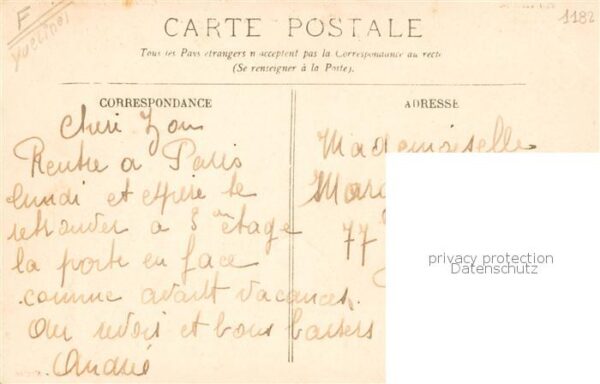 F
Yvelines
1182
CARTE POSTALE
Tous les Pays étrangers n'acceptent pas la Correspondance au recto
(Se renseigner à la Poste).
CORRESPONDANCE
Cheri
Rentre a Paris
lundi et espère te
retrouver a 3 étage
la porte en face
comme avant vacances.
Au revoir et bons baisers
André
ADRESSE
Mademoiselle
77
privacy protection
Datenschutz